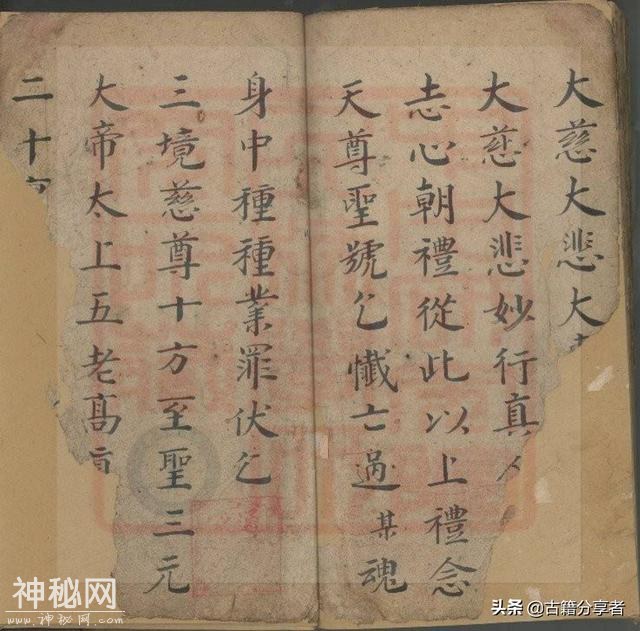 大慈大悲大
大慈大悲妙行真人
志心朝禮從此以上禮念
天尊聖號乞懺亡過某魂
身中種種業罪伏乞
三境慈尊十方至聖三元
大帝太上五老髙
二十
神秘网
www.shenmiw.com
头条 @古籍分享者